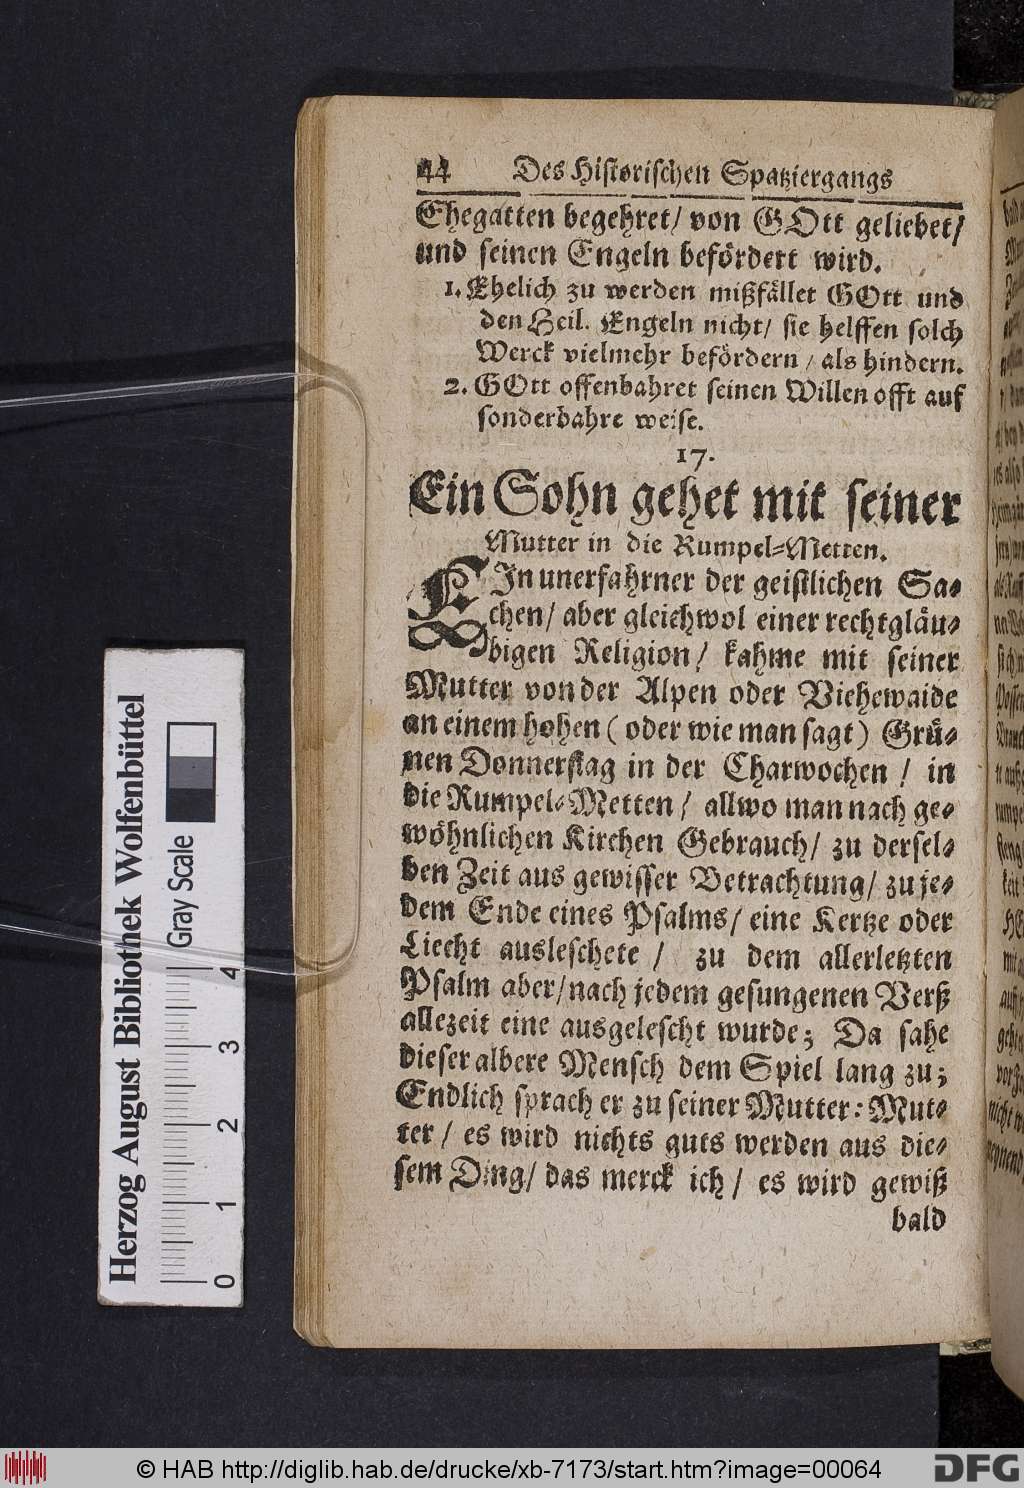 44 Des Historischen Spatziergangs
Ehegatten begehret/ von GOtt geliebet/
und seinen Engeln befördert wird.
1. Ehelich zu werden mißfället GOtt und
den Heil. Engeln nicht/ sie helffen solch
Werck vielmehr befördern/ als hindern.
2. GOtt offenbahret seinen Willen offt auf
sonderbahre weise.
17.
Ein Sohn gehet mit seiner
Mutter in die Rumpel-Metten.
EIn unerfahrner der geistlichen Sa-
chen/ aber gleichwol einer rechtgläu-
bigen Religion/ kahme mit seiner
Mutter von der Alpen oder Viehewaide
an einem hohen (oder wie man sagt) Grü-
nen Donnerstag in der Charwochen/ in
die Rumpel-Metten/ allwo man nach ge-
wöhnlichen Kirchen Gebrauch/ zu dersel-
ben Zeit aus gewisser Betrachtung/ zu je-
dem Ende eines Psalms/ eine Kertze oder
Liecht ausleschete/ zu dem allerletzten
Psalm aber/ nach jedem gesungenen Verß
allezeit eine ausgelescht wurde; Da sahe
dieser albere Mensch dem Spiel lang zu;
Endlich sprach er zu seiner Mutter: Mut-
ter/ es wird nichts guts werden aus die-
sem Ding/ das merck ich/ es wird gewiß
bald
Herzog August Bibliothek Wolfenbüttel
Gray Scale
0 1 2 3 4
© HAB http://diglib.hab.de/drucke/xb-7173/start.htm?image=00064
DFG